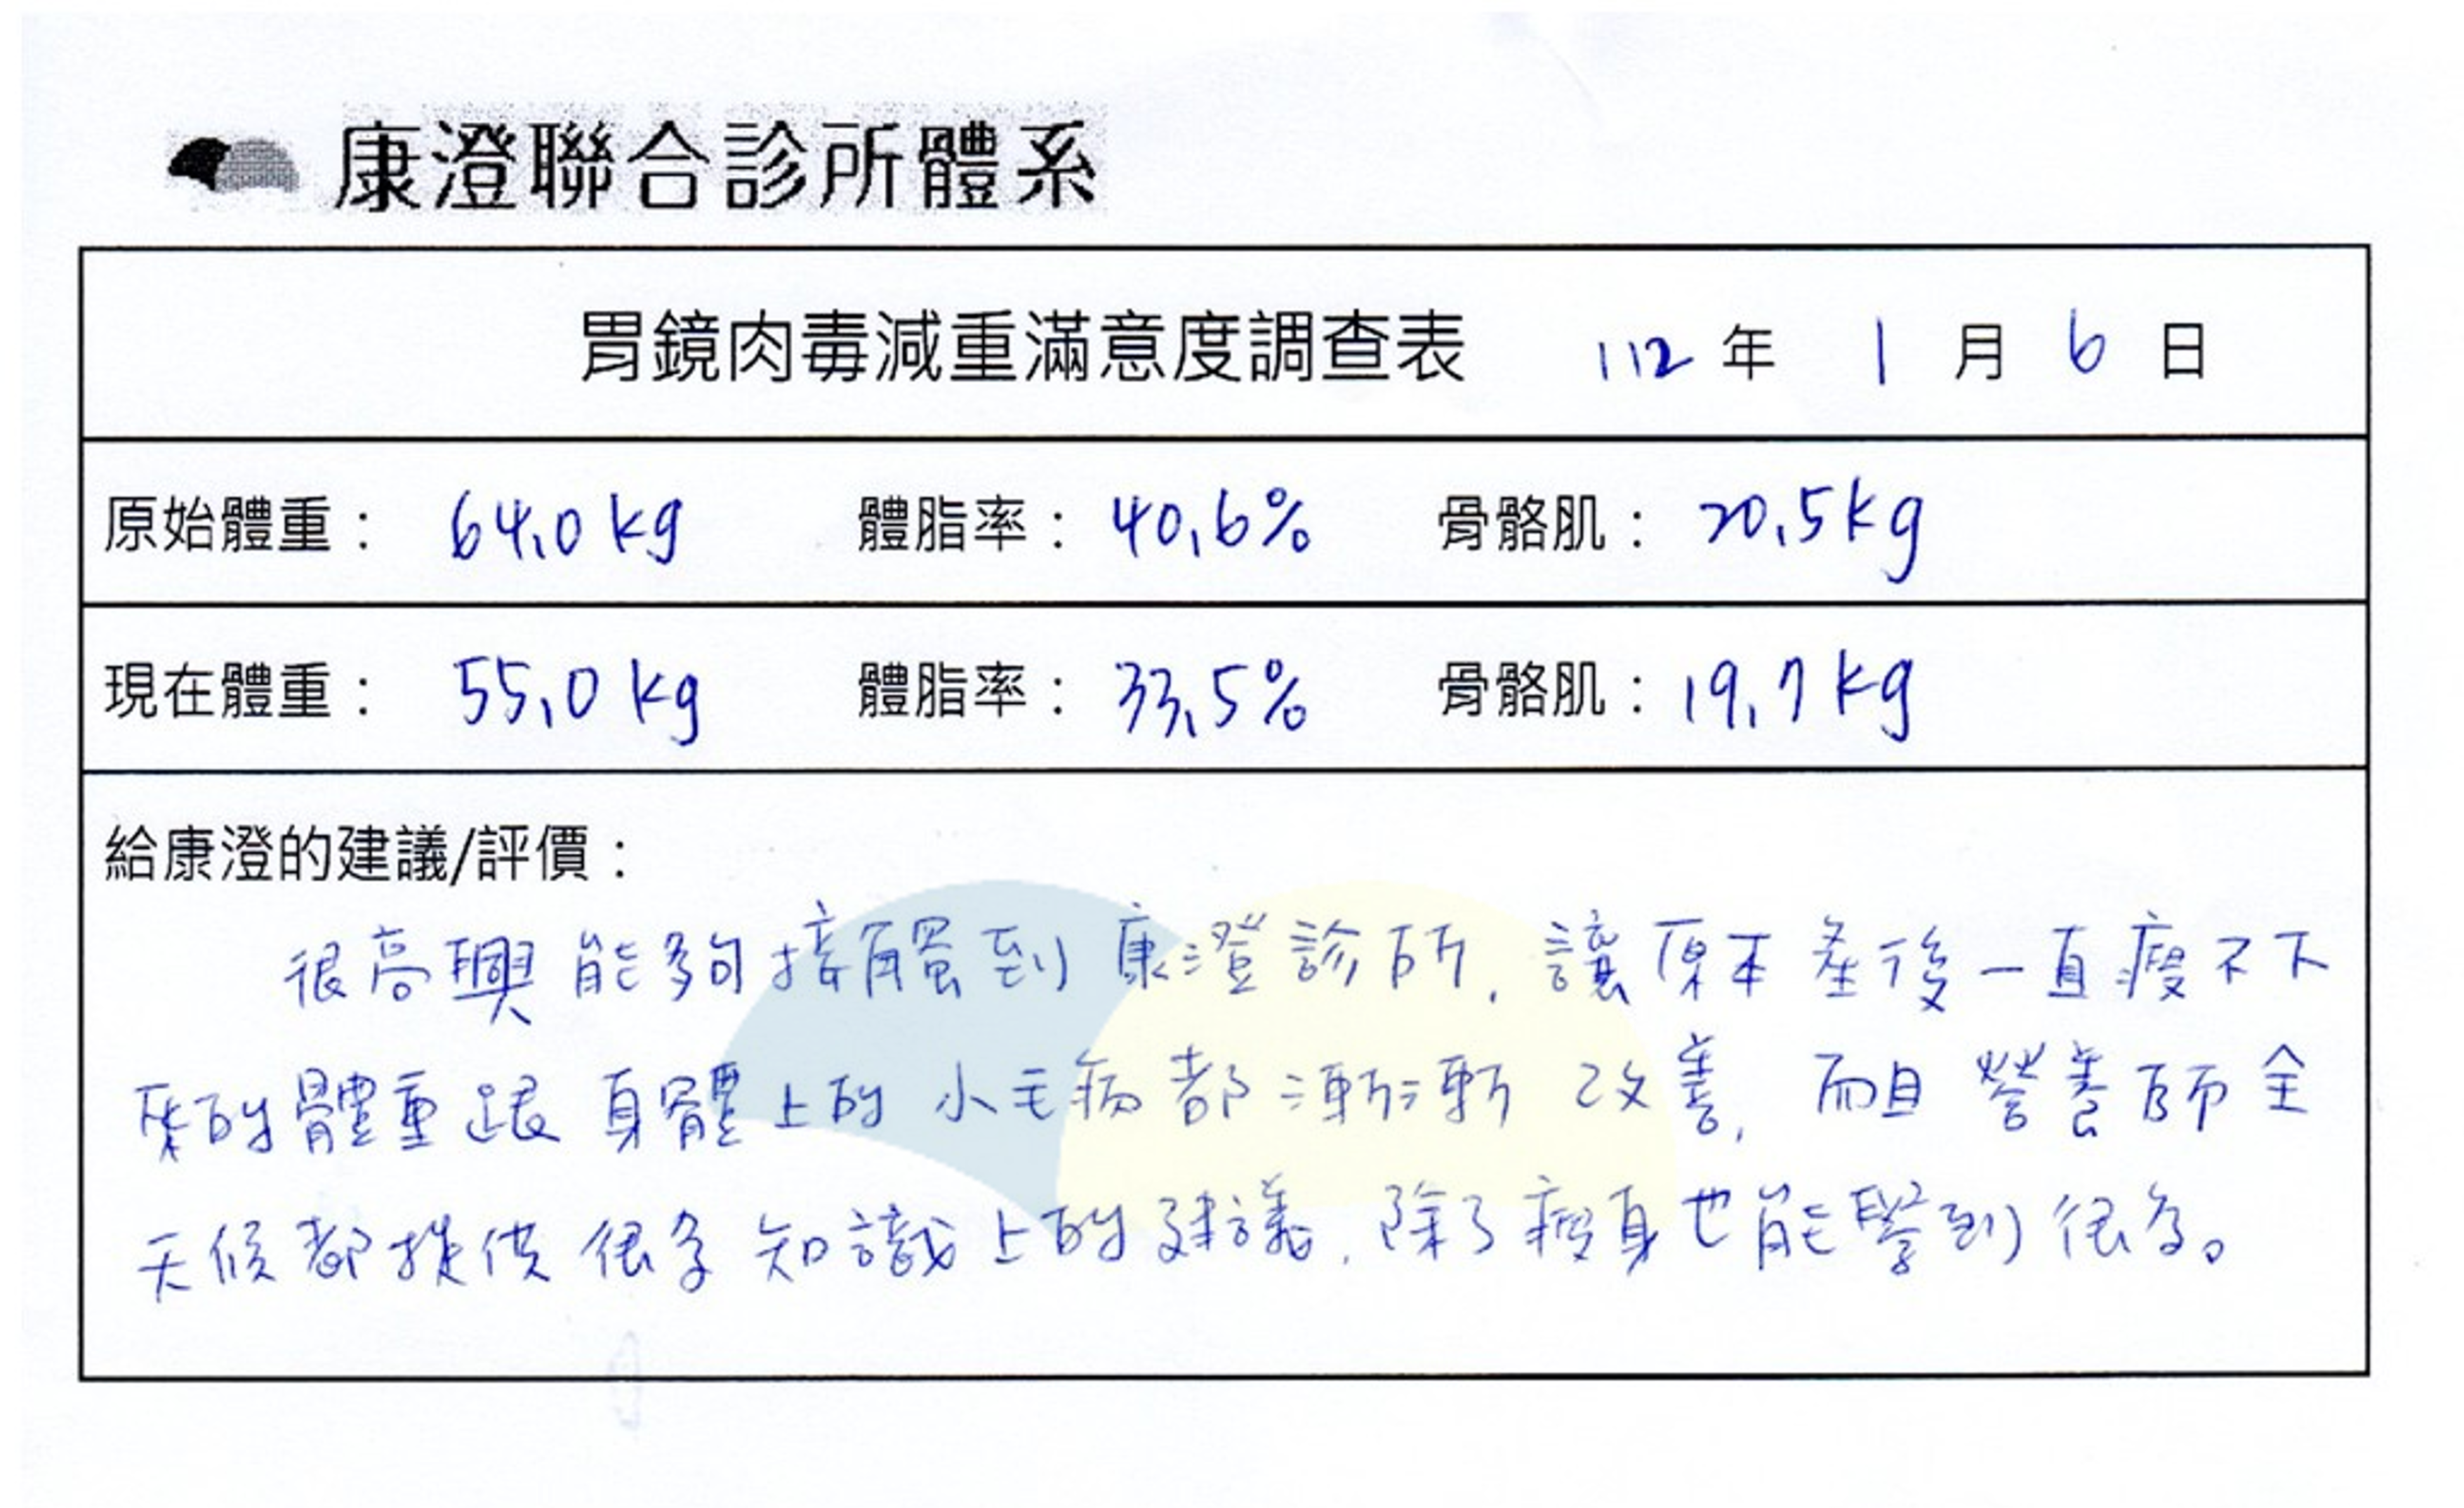 康澄聯合診所體系
胃鏡肉毒減重滿意度調查表 112 年 1 月 6 日
原始體重： 64.0 kg 體脂率： 40.6% 骨骼肌： 20.5kg
現在體重： 55.0 kg 體脂率： 33.5% 骨骼肌： 19.7kg
給康澄的建議/評價：
很高興能夠接觸到康澄診所，讓原本產後一直瘦不下
來的體重跟身體上的小毛病都漸漸改善，而且營養師全
天候都提供很多知識上的建議，除了瘦身也能學到很多。